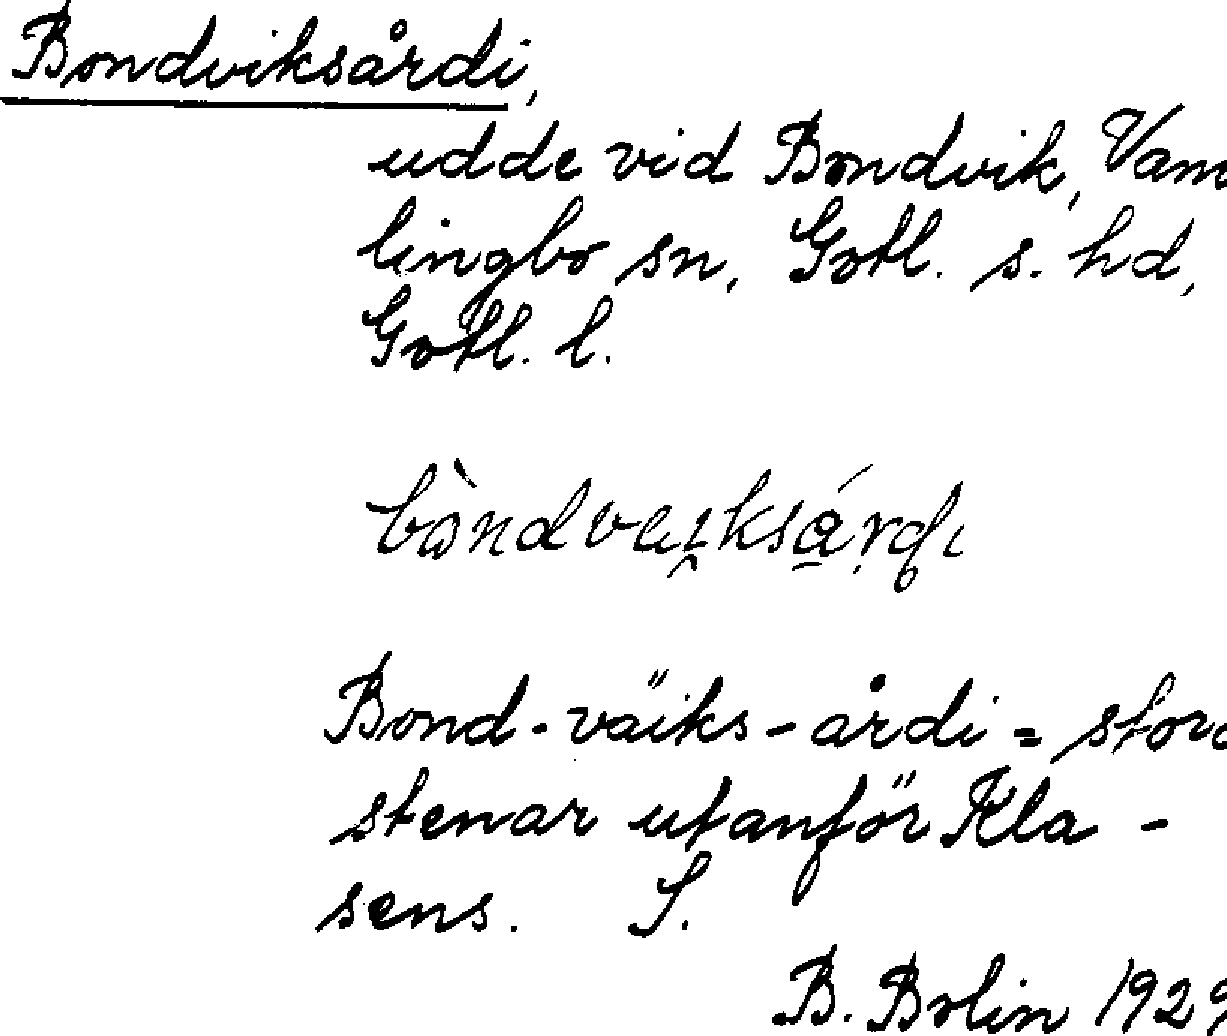 Bondviksårdi,
udde vid Bondvik, Vam
lingbo sn, Gotl. s. hd,
Gotl. l.
Bond-väiks-årdi = stora
stenar utanför Kla-
sens. S.
B. Bolin 1929